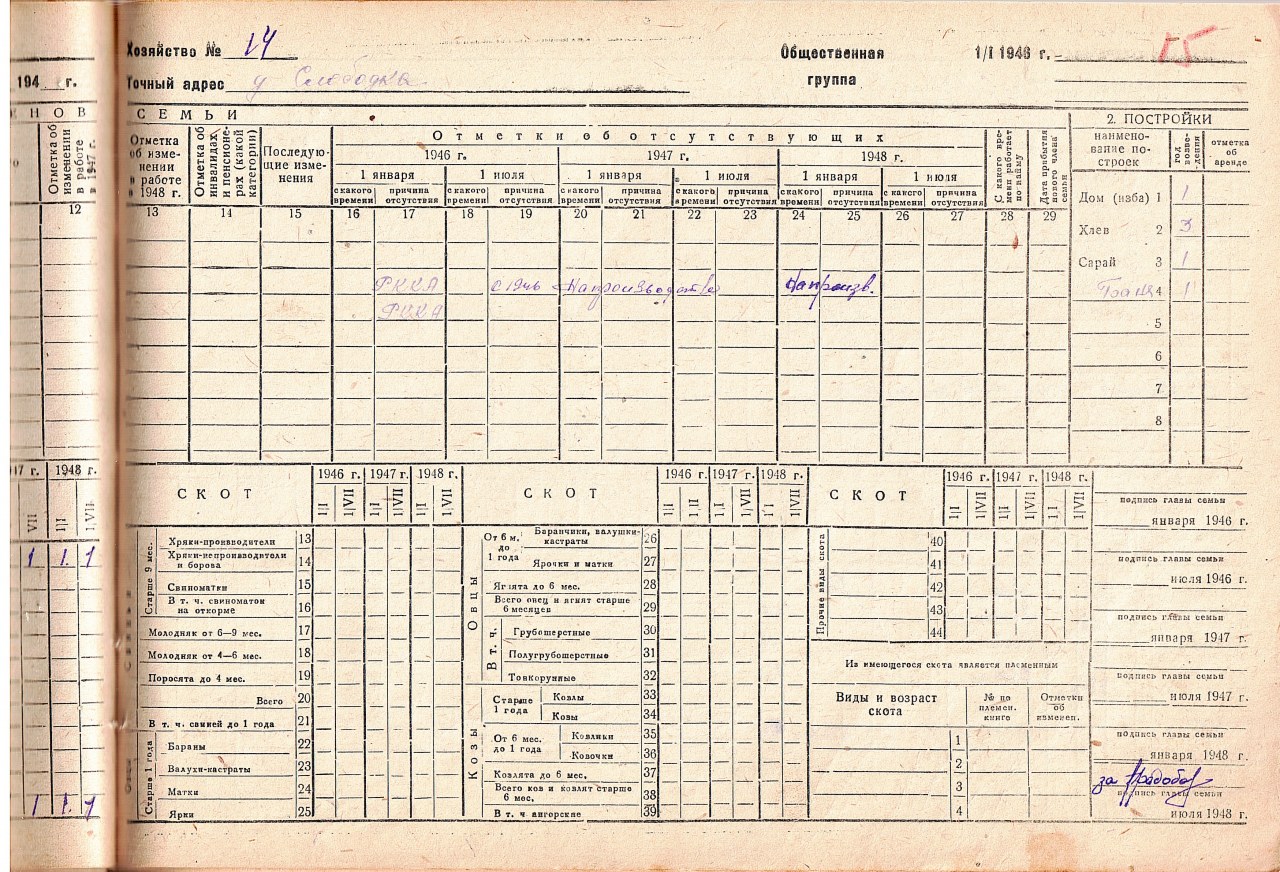 194 г.
Н О В
Отметка об изменении в работе в 1947 г.
12
17 г. 1948 г.
VII 1|I 1|VII
1 1. 1
1 1. 1
Хозяйство № 14
Общественная группа
1/I 1946 г. -
15
Точный адрес у Слободка
С Е М Ь И
Отметка об изменении в работе в 1948 г.
Отметка об инвалидах и пенсионерах (какой категории)
Последующие изменения
Отметки об отсутствующих
1946 г. 1947 г. 1948 г.
1 января 1 июля 1 января 1 июля 1 января 1 июля
с какого времени причина отсутствия с какого времени причина отсутствия с какого времени причина отсутствия с какого времени причина отсутствия с какого времени причина отсутствия с какого времени причина отсутствия
С какого времени работает по найму
Дата прибытия нового члена семьи
13 14 15 16 17 18 19 20 21 22 23 24 25 26 27 28 29
РККА с 1946 На производстве На произв.
РККА
2. ПОСТРОЙКИ
наименование построек год возведения отметка об аренде
Дом (изба) 1 1
Хлев 2 3
Сарай 3 1
4 1
5
6
7
8
С К О Т
1946 г. 1947 г. 1948 г.
1|I 1|VII 1|I 1|VII 1|I 1|VII
Старше 9 мес.
Хряки-производители 13
Хряки-непроизводители и борова 14
Свиноматки 15
В т. ч. свиноматок на откорме 16
Молодняк от 6—9 мес. 17
Молодняк от 4—6 мес. 18
Поросята до 4 мес. 19
Всего 20
В т. ч. свиней до 1 года 21
Старше 1 года
Бараны 22
Валухи-кастраты 23
Матки 24
Ярки 25
С К О Т
1946 г. 1947 г. 1948 г.
1|I 1|VII 1|I 1|VII 1|I 1|VII
Овцы
От 6 м. до 1 года
Баранчики, валушки-кастраты 26
Ярочки и матки 27
Ягнята до 6 мес. 28
Всего овец и ягнят старше 6 месяцев 29
В т. ч.
Грубошерстные 30
Полугрубошерстные 31
Тонкорунные 32
Козы
Старше 1 года
Козлы 33
Козы 34
От 6 мес. до 1 года
Козлики 35
Козочки 36
Козлята до 6 мес. 37
Всего коз и козлят старше 6 мес. 38
В т. ч ангорские 39
С К О Т
1946 г. 1947 г. 1948 г.
1|I 1|VII 1|I 1|VII 1|I 1|VII
Прочие виды скота
40
41
42
43
44
Из имеющегося скота является племенным
Виды и возраст скота № по племен. книге Отметки об изменен.
1
2
3
4
подпись главы семьи
января 1946 г.
подпись главы семьи
июля 1946 г.
подпись главы семьи
января 1947 г.
подпись главы семьи
июля 1947 г.
подпись главы семьи
января 1948 г.
за
подпись главы семьи
июля 1948 г.